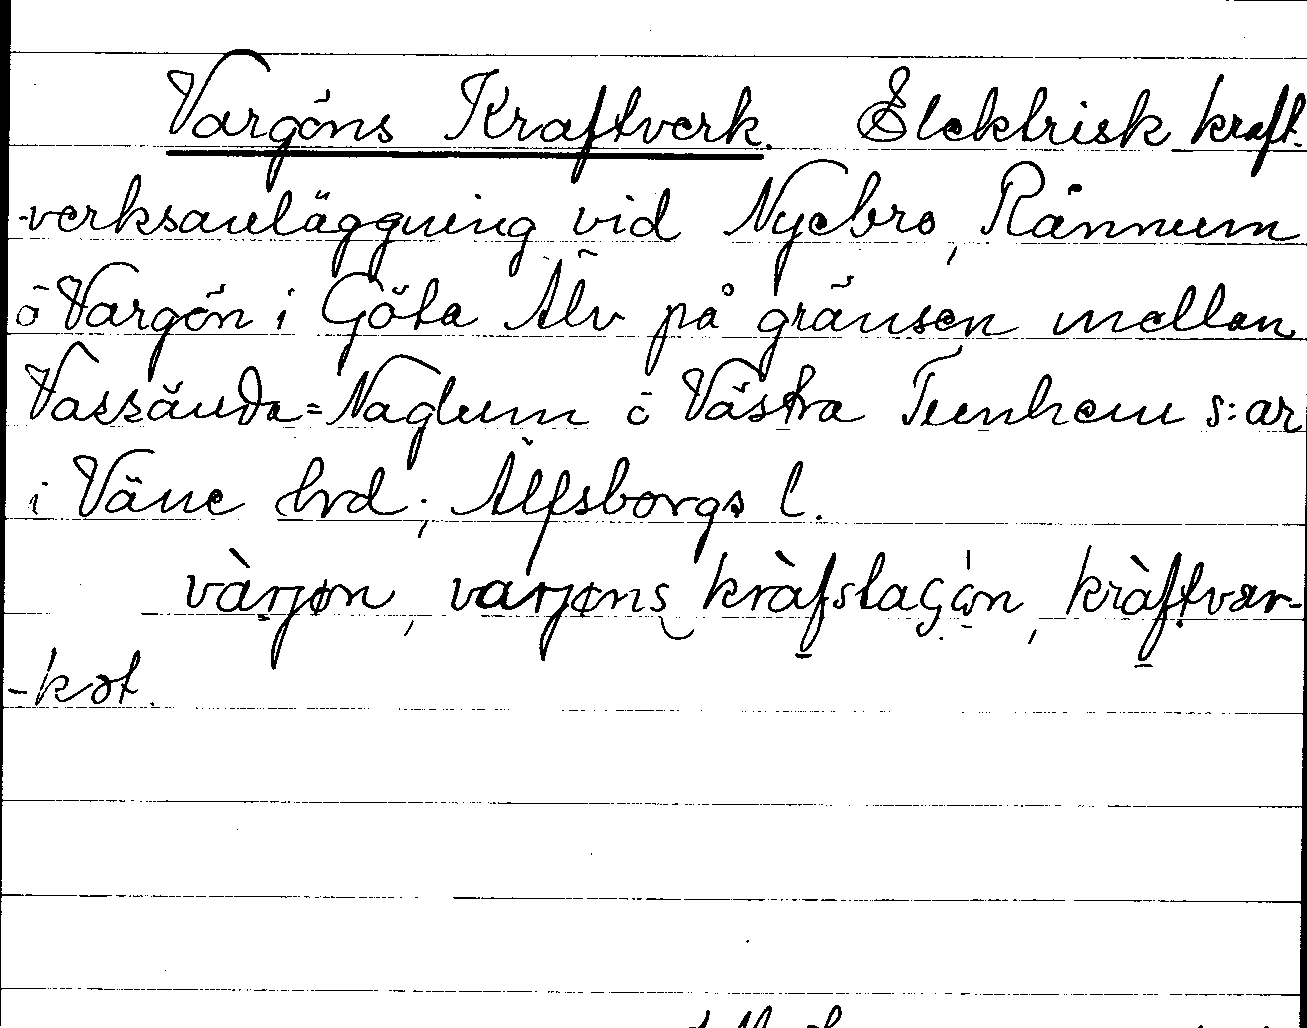 Vargöns Kraftverk. Elektrisk kraft-
-verksanläggning vid Nyebro, Rånnum
o Vargön i Göta Älv på gränsen mellan
Vassända=Naglum o Västra Tunhem s:ar
i Väne hrd; Älfsborgs l.
vàrjøn, varjøns kràfstaGɷn, kràftvær-
-kət.